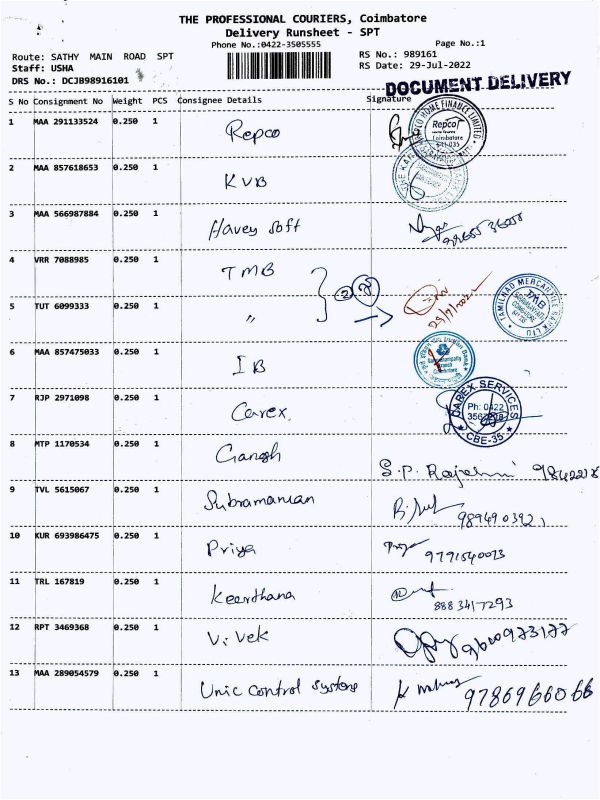 THE PROFESSIONAL COURIERS, Coimbatore
Delivery Runsheet - SPT
Phone No.:0422-3505555 Page No.:1
Route: SATHY MAIN ROAD SPT RS No.: 989161
Staff: USHA RS Date: 29-Jul-2022
DRS No.: DCJB98916101
DOCUMENT DELIVERY
S No Consignment No Weight PCS Consignee Details Signature
1 MAA 291133524 0.250 1 Repco
Repco
Coimbatore
2 MAA 857618653 0.250 1 KVB
3 MAA 566987884 0.250 1 Havey Soft
4 VRR 7088985 0.250 1 TMB
2
29/7/2022
TAMILNAD MERCANTILE BANK LTD
TMB
5 TUT 6099333 0.250 1 "
6 MAA 857475033 0.250 1 IB
7 RJP 2971098 0.250 1 Carex
CAREX SERVICES
Ph: 0422
CBE-35
8 MTP 1170534 0.250 1 Ganesh S.P.
9 TVL 5615067 0.250 1 Subramanian
10 KUR 693986475 0.250 1 Priya Priya 9791540073
11 TRL 167819 0.250 1 Keerthana 8883417293
12 RPT 3469368 0.250 1 Vivek
13 MAA 289054579 0.250 1 Unic Control Systems 9786966066